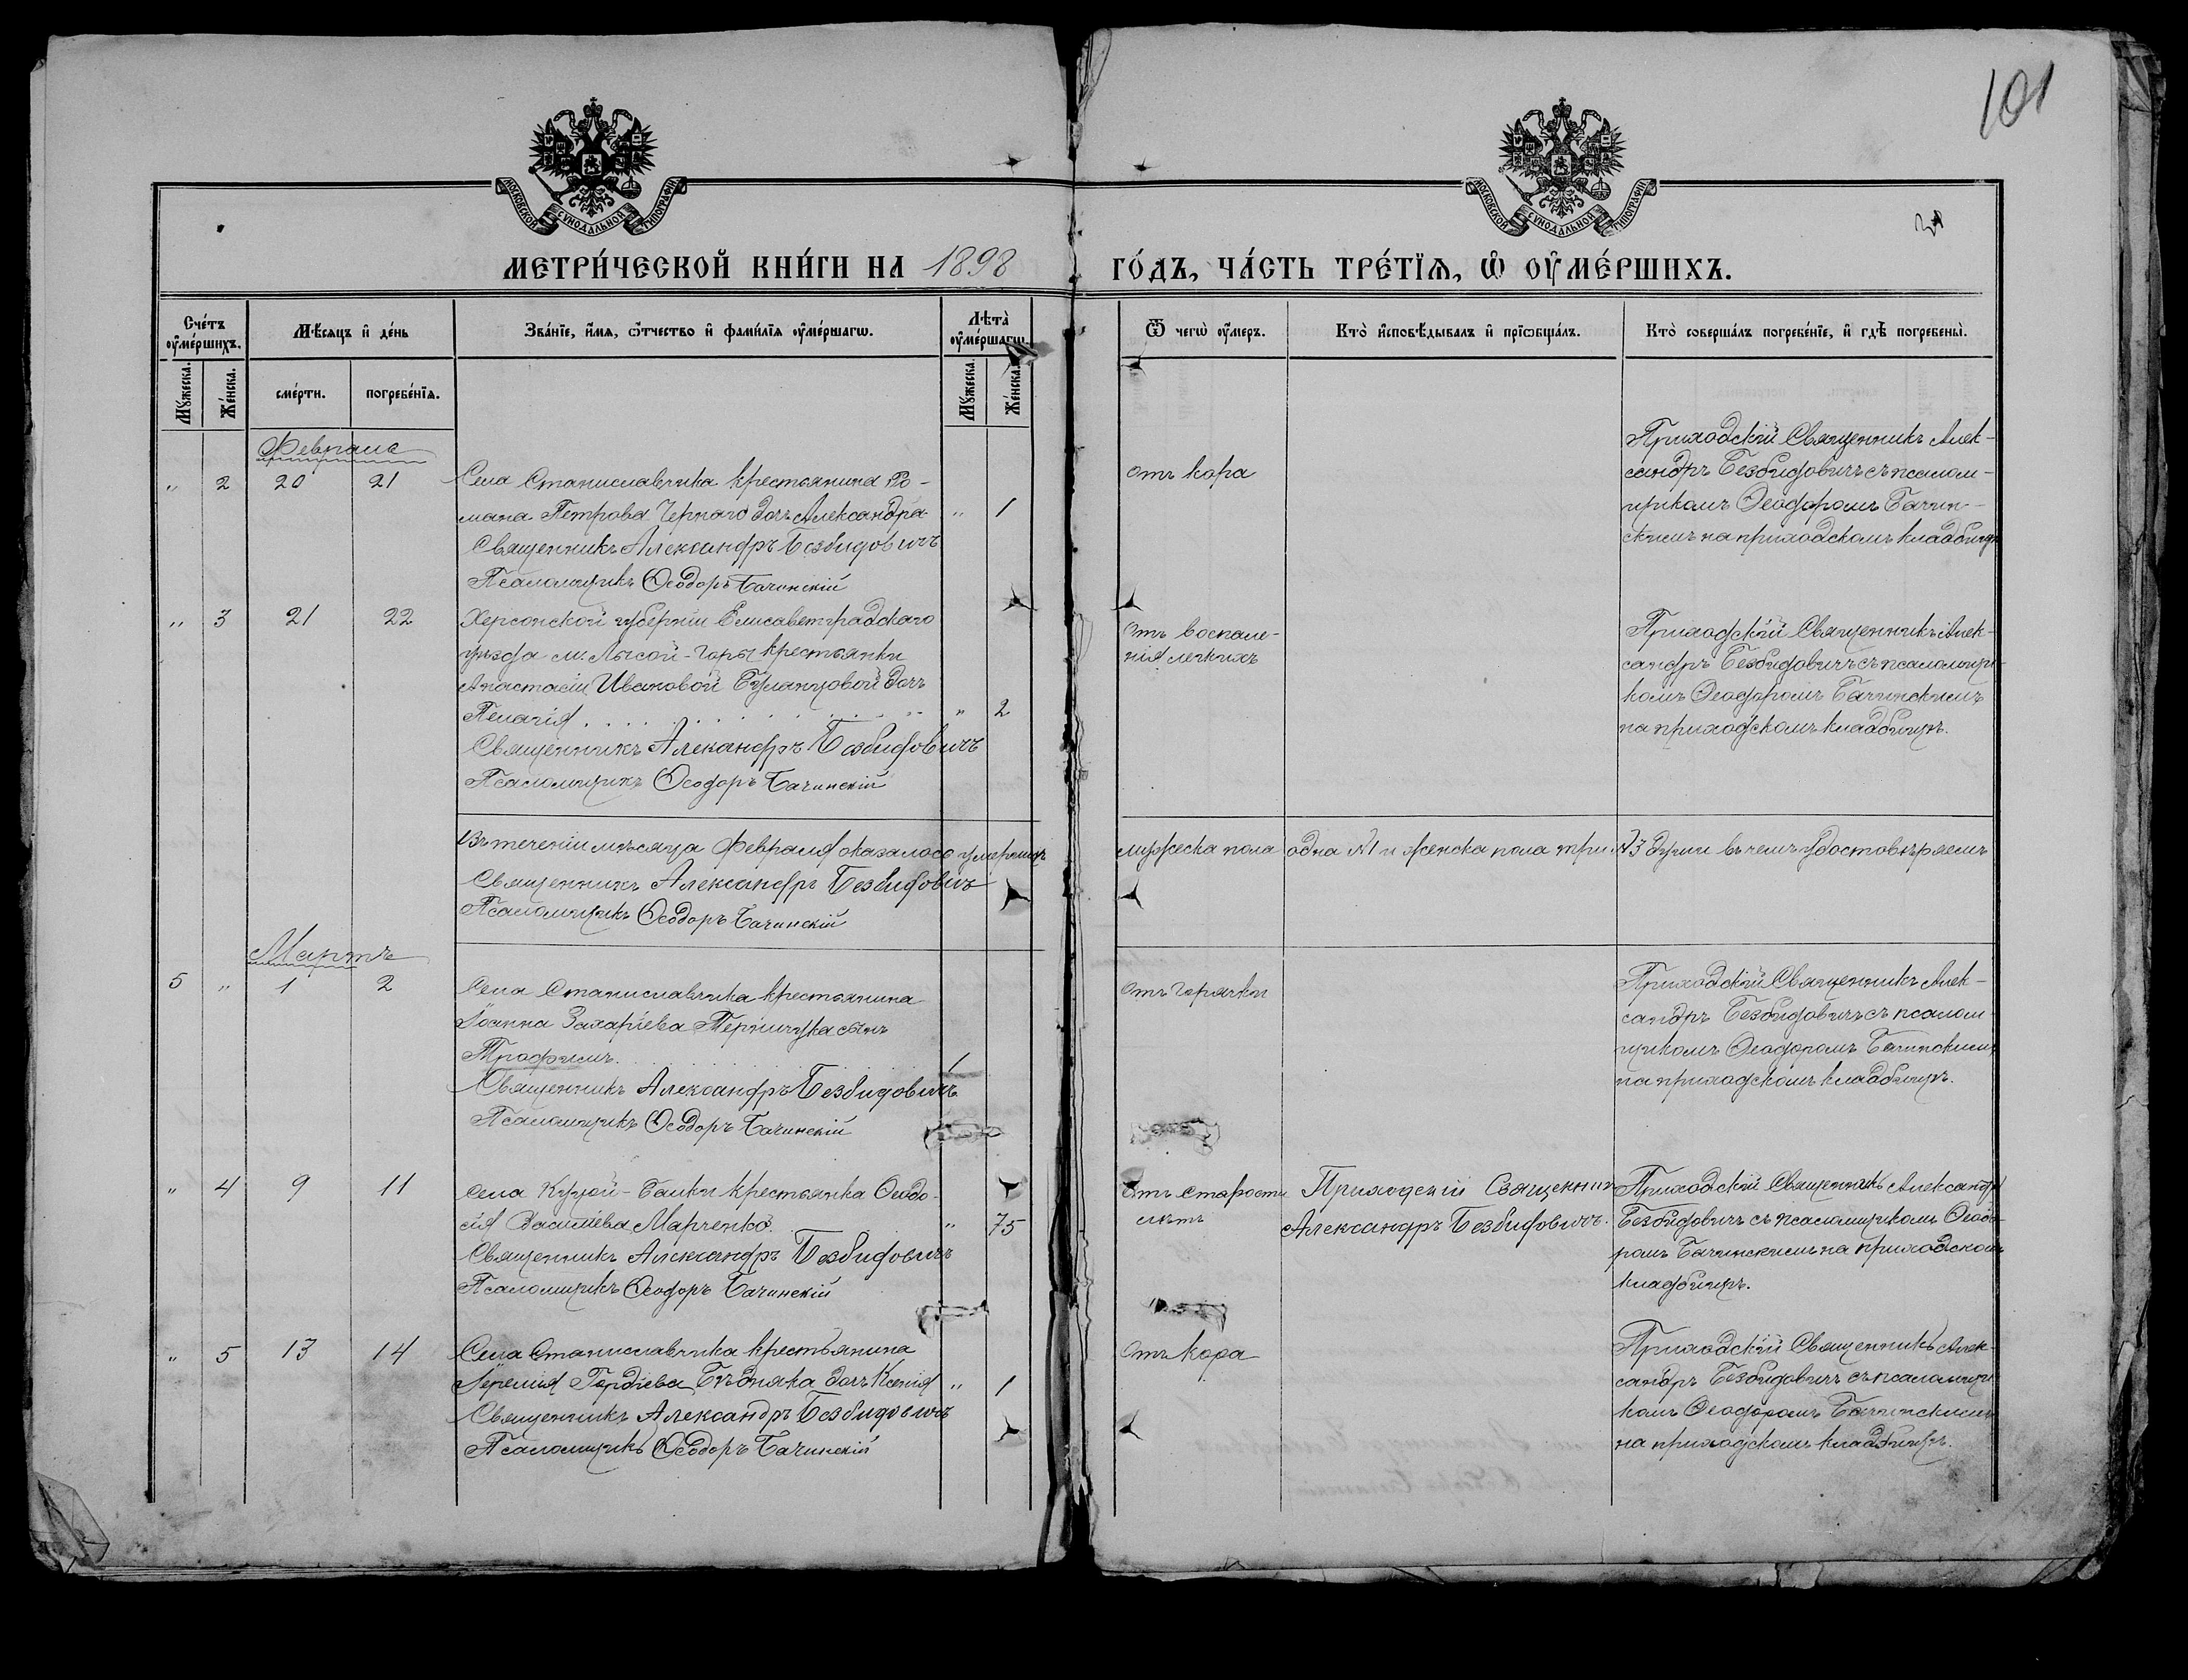 101
МОСКОВСКОЙ СѴНОДАЛЬНОЙ ТИПОГРАФІИ
МОСКОВСКОЙ СѴНОДАЛЬНОЙ ТИПОГРАФІИ
МЕТРИ́ЧЕСКОЙ КНИ́ГИ НА 1898 ГО́ДЪ, ЧА́СТЬ ТРЕ́ТЇѦ, Ѡ ОУМЕ́РШИХЪ.
Сче́тъ оумершихъ.
Мѣсѧцъ и де́нь
Зва́нїе, и́мѧ, ѻтчество и фами́лїѧ оуме́ршагѡ.
Лѣта̀ оуме́ршагѡ.
Ѿ чегѡ̀ оу́меръ.
Кто̀ исповѣдывалъ и прїѡбща́лъ.
Кто̀ соверша́лъ погребе́нїе, и гдѣ̀ погребены̀.
Мꙋжеска.
Же́нска.
сме́рти.
погребе́нїѧ.
Мꙋжеска.
Же́нска.
Февраль
" 2 20 21 Села Станиславчика крестьянина Ро-
мана Петрова Чернаго дочь Александра " 1
Священникъ Александръ Безбидовичъ
Псаломщикъ Ѳеодоръ Бачинскій
отъ кора
Приходскій Священникъ Алек-
сандръ Безбидовичъ съ псалом-
щикомъ Ѳеодоромъ Бачин-
скимъ на приходскомъ кладбищѣ
" 3 21 22 Херсонской губерніи Елисаветградскаго
уѣзда м. Лысой-Горы крестьянки
Анастасіи Ивановой дочь
Пелагія " 2
Священникъ Александръ Безбидовичъ
Псаломщикъ Ѳеодоръ Бачинскій
Отъ воспале-
нія легкихъ
Приходскій Священникъ Алек-
сандръ Безбидовичъ съ псаломщи-
комъ Ѳеодоромъ Бачинскимъ
на приходскомъ кладбищѣ.
Въ теченіи мѣсяца Февраля оказалось умершихъ мужеска пола одна №1 и женска пола три №3 души въ чемъ удостовѣряемъ
Священникъ Александръ Безбидовичъ
Псаломщикъ Ѳеодоръ Бачинскій
Мартъ
5 " 1 2 Села Станиславчика крестьянина
Іоанна Захаріева сынъ
Трофимъ. 1
Священникъ Александръ Безбидовичъ
Псаломщикъ Ѳеодоръ Бачинскій
Отъ горячки
Приходскій Священникъ Алек-
сандръ Безбидовичъ съ псалом-
щикомъ Ѳеодоромъ Бачинскимъ
на приходскомъ кладбищѣ.
" 4 9 11 Села Куцой-Балки крестьянка Ѳеодо-
сія Василіева Марченко " 75
Священникъ Александръ Безбидовичъ
Псаломщикъ Ѳеодоръ Бачинскій
Отъ старости
лѣтъ
Приходскій Священникъ
Александръ Безбидовичъ.
Приходскій Священникъ Александръ
Безбидовичъ съ псаломщикомъ Ѳеодо-
ромъ Бачинскимъ на приходскомъ
кладбищѣ.
" 5 13 14 Села Станиславчика крестьянина
Іереміи Гордіева Бѣдняка дочь Ксенія " 1
Священникъ Александръ Безбидовичъ
Псаломщикъ Ѳеодоръ Бачинскій
Отъ кора
Приходскій Священникъ Алек-
сандръ Безбидовичъ съ псаломщи-
комъ Ѳеодоромъ Бачинскимъ
на приходскомъ кладбищѣ.